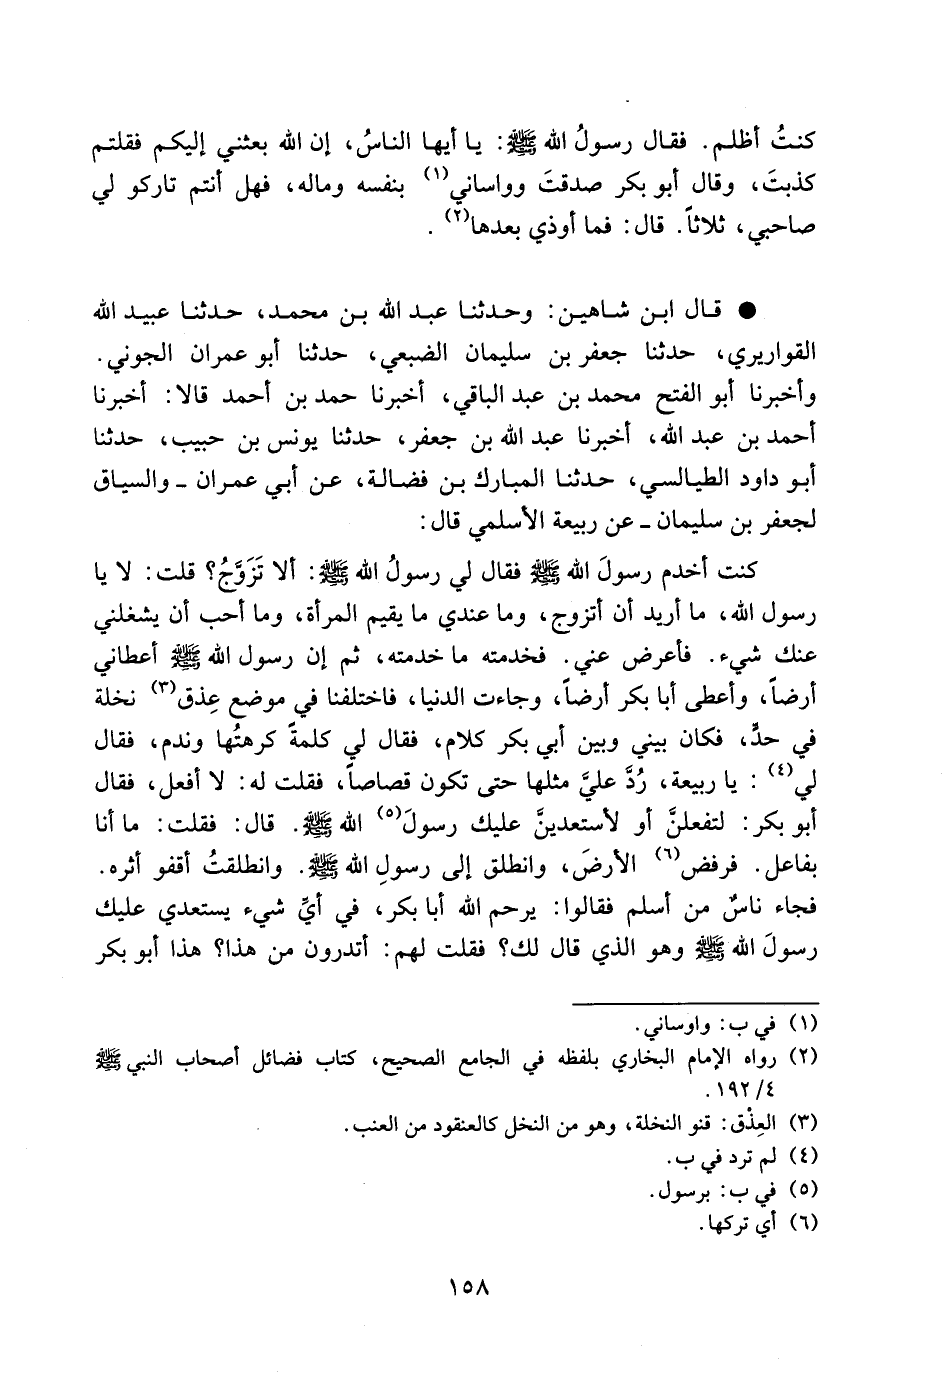 كنتُ أظلم. فقال رسولُ الله ﷺ: يا أيها الناسُ، إن الله بعثني إليكم فقلتم
كذبتَ، وقال أبو بكر صدقتَ وواساني(١) بنفسه وماله، فهل أنتم تاركو لي
صاحبي، ثلاثاً. قال: فما أوذي بعدها(٢) .
● قال ابن شاهين: وحدثنا عبد الله بن محمد، حدثنا عبيد الله
القواريري، حدثنا جعفر بن سليمان الضبعي، حدثنا أبو عمران الجوني.
وأخبرنا أبو الفتح محمد بن عبد الباقي، أخبرنا حمد بن أحمد قالا: أخبرنا
أحمد بن عبد الله، أخبرنا عبد الله بن جعفر، حدثنا يونس بن حبيب، حدثنا
أبو داود الطيالسي، حدثنا المبارك بن فضالة، عن أبي عمران ـ والسياق
لجعفر بن سليمان ـ عن ربيعة الأسلمي قال:
كنت أخدم رسولَ الله ﷺ فقال لي رسولُ الله ﷺ: ألا تَزَوَّجُ؟ قلت: لا يا
رسول الله، ما أريد أن أتزوج، وما عندي ما يقيم المرأة، وما أحب أن يشغلني
عنك شيء. فأعرض عني. فخدمته ما خدمته، ثم إن رسول الله ﷺ أعطاني
أرضاً، وأعطى أبا بكر أرضاً، وجاءت الدنيا، فاختلفنا في موضع عِذق(٣) نخلة
في حدٍّ، فكان بيني وبين أبي بكر كلام، فقال لي كلمةً كرهتُها وندم، فقال
لي(٤) : يا ربيعة، رُدَّ عليَّ مثلها حتى تكون قصاصاً، فقلت له: لا أفعل، فقال
أبو بكر: لتفعلنَّ أو لأستعدينَّ عليك رسولَ(٥) الله ﷺ. قال: فقلت: ما أنا
بفاعل. فرفض(٦) الأرضَ، وانطلق إلى رسولِ الله ﷺ. وانطلقتُ أقفو أثره.
فجاء ناسٌ من أسلم فقالوا: يرحم الله أبا بكر، في أيِّ شيء يستعدي عليك
رسولَ الله ﷺ وهو الذي قال لك؟ فقلت لهم: أتدرون من هذا؟ هذا أبو بكر
(١) في ب: واوساني.
(٢) رواه الإمام البخاري بلفظه في الجامع الصحيح، كتاب فضائل أصحاب النبي ﷺ
٤/ ١٩٢.
(٣) العِذْق: قنو النخلة، وهو من النخل كالعنقود من العنب.
(٤) لم ترد في ب.
(٥) في ب: برسول.
(٦) أي تركها.
١٥٨